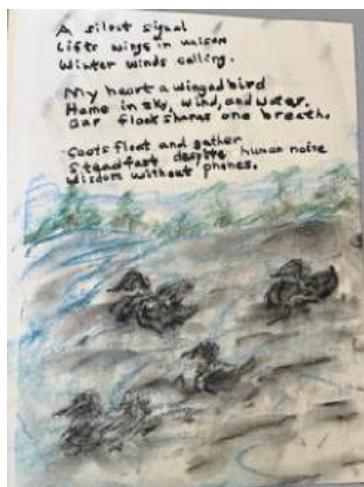 A silent signal
Lifts wings in unison
Winter winds calling.
My heart a winged bird
Home in sky, wind, and water.
Our flock shares one breath.
Coots float and gather
Steadfast despite human noise
Wisdom without phones.